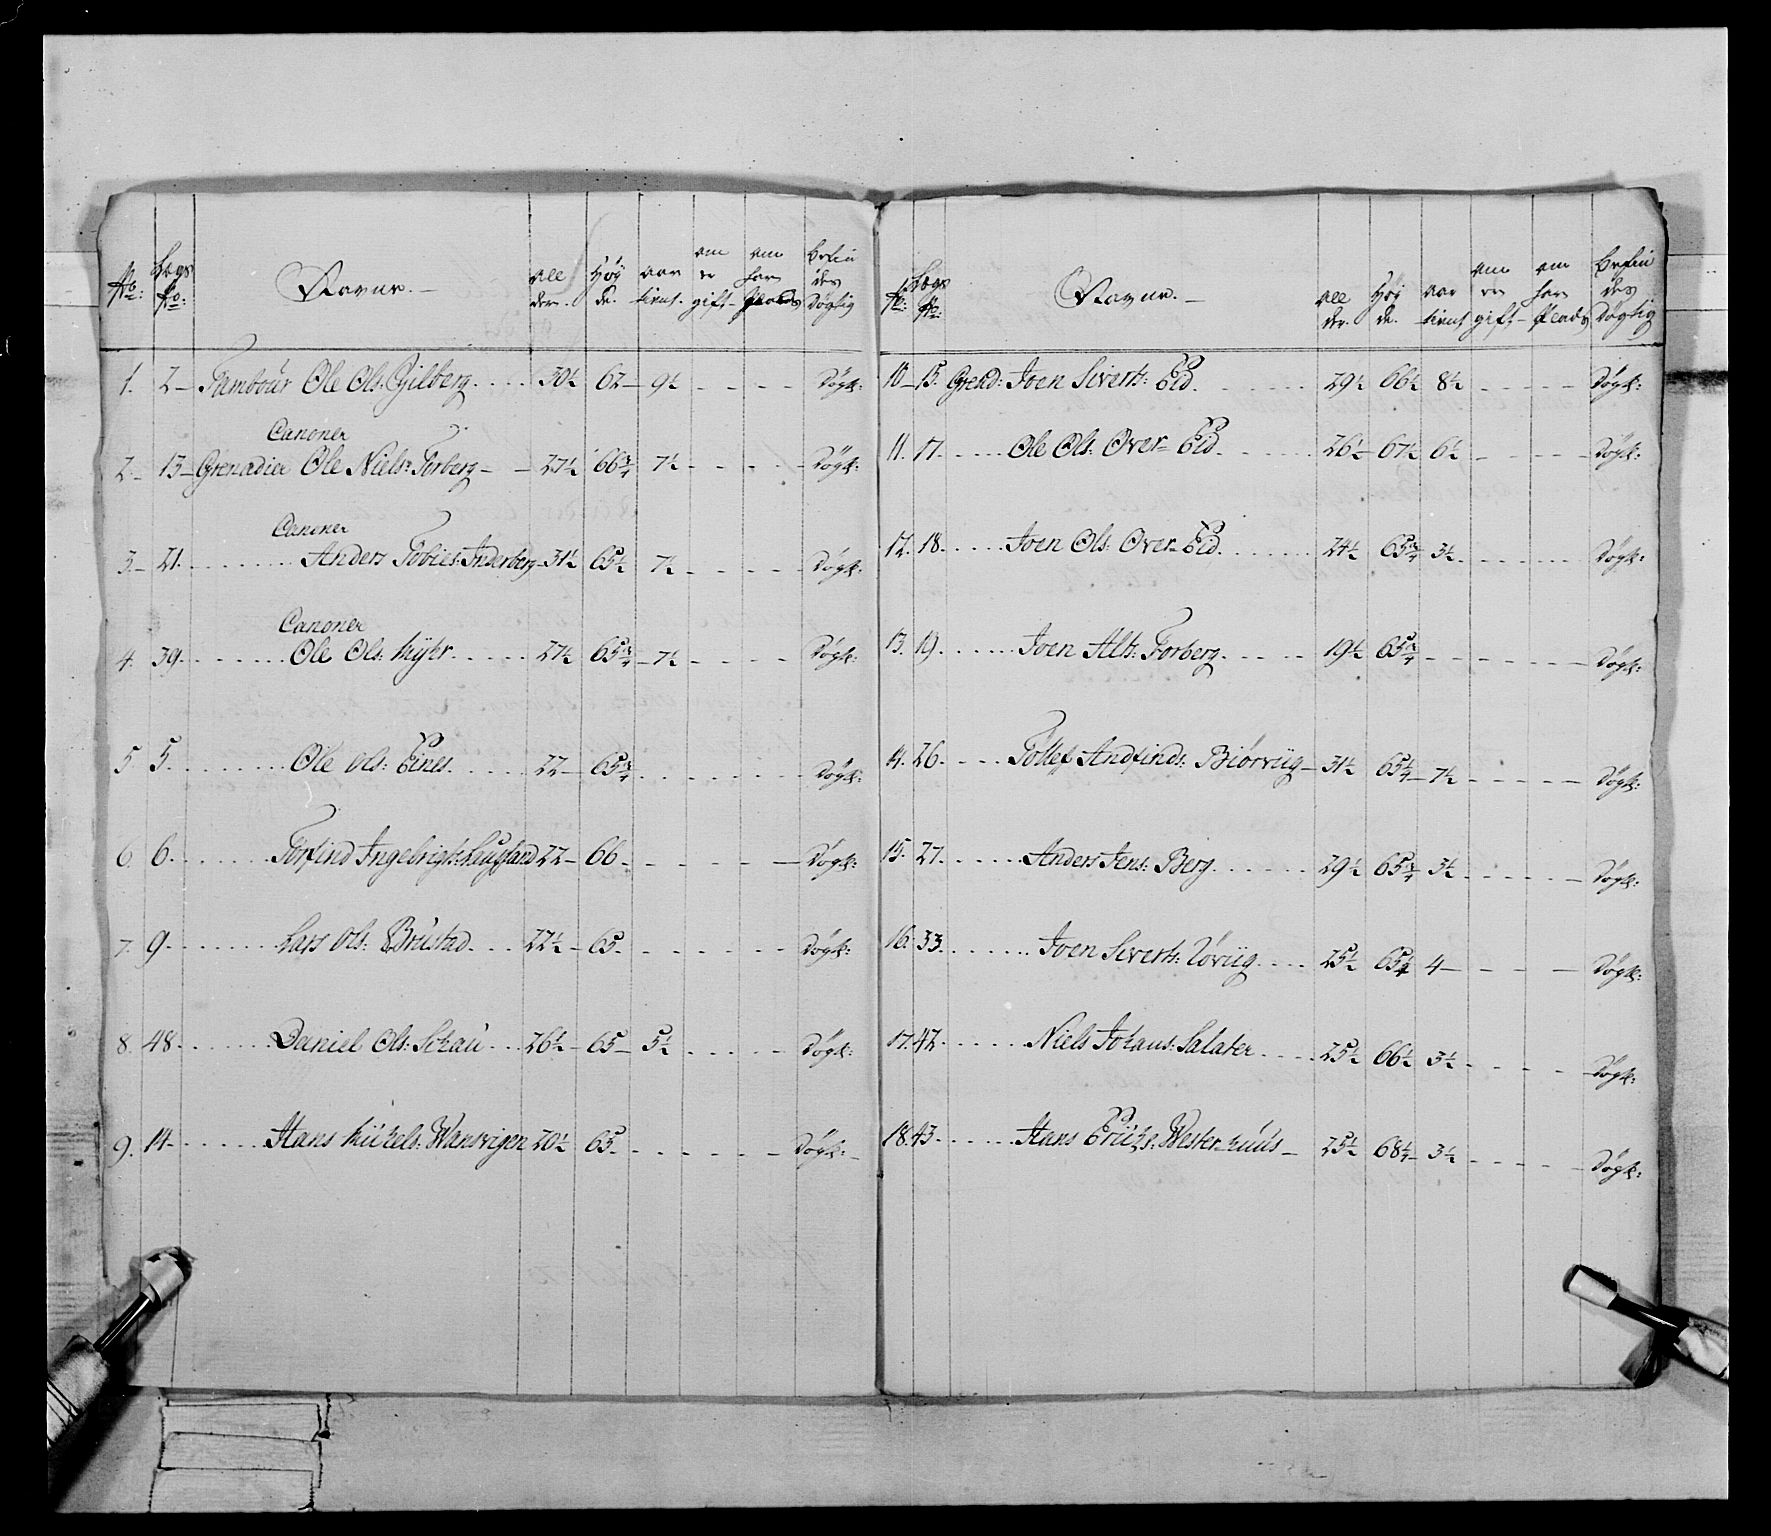 No: Lægs No: Navne. Allder. Høyde. aar tient. om er gift om har Plads befindes Døgtig
1. 2 Tambour Ole Ols: Gilberg 30½ 62 9½ Døgt:
Canoner
2 13 Grenadier Ole Niels: Forberg 27½ 66¾ 7½ Døgt:
Canoner
3 21. Anders Tobies: Inderberg 31½ 65½ 7½ Døgt:
Canoner
4. 39. Ole Ols: Myhr 27½ 65¾ 7½ Døgt:
5 5. Ole Ols: Eines 22 65¾ Døgt:
6 6. Torfind Ingebrigts: Laugsand 22 66 Døgt:
7. 9. Lars Ols: Brustad 22½ 65 Døgt:
8. 48. Daniel Ols: Schau 26½ 65 5½ Døgt:
9. 14 Hans Michels: Wansvigen 20½ 65 Døgt:
No: Lægs No: Navne. Allder. Høyde. aar tient om er gift om har Plads befindes Døgtig
10 15. Grend: Joen Siverts: Eid 29½ 66½ 8½ Døgt:
11. 17. Ole Ols: Over Eid 26½ 67½ 6½ Døgt:
12. 18. Joen Ols: Over Eid 24½ 65¾ 3½ Døgt:
13. 19. Joen Alt: Forberg 19½ 65¾ Døgt:
14. 26. Tollef Andfinds: Biørviig 31½ 65¼ 7½ Døgt:
15. 27. Anders Jens: Berg 29½ 65¾ 3½ Døgt:
16. 33. Joen Siverts: 25½ 4 Døgt:
17. 42. Niels Johans: Salater 25½ 66½ 3½ Døgt:
18. 43. Hans Erichs: Wester huus 25½ 68¼ 3½ Døgt: